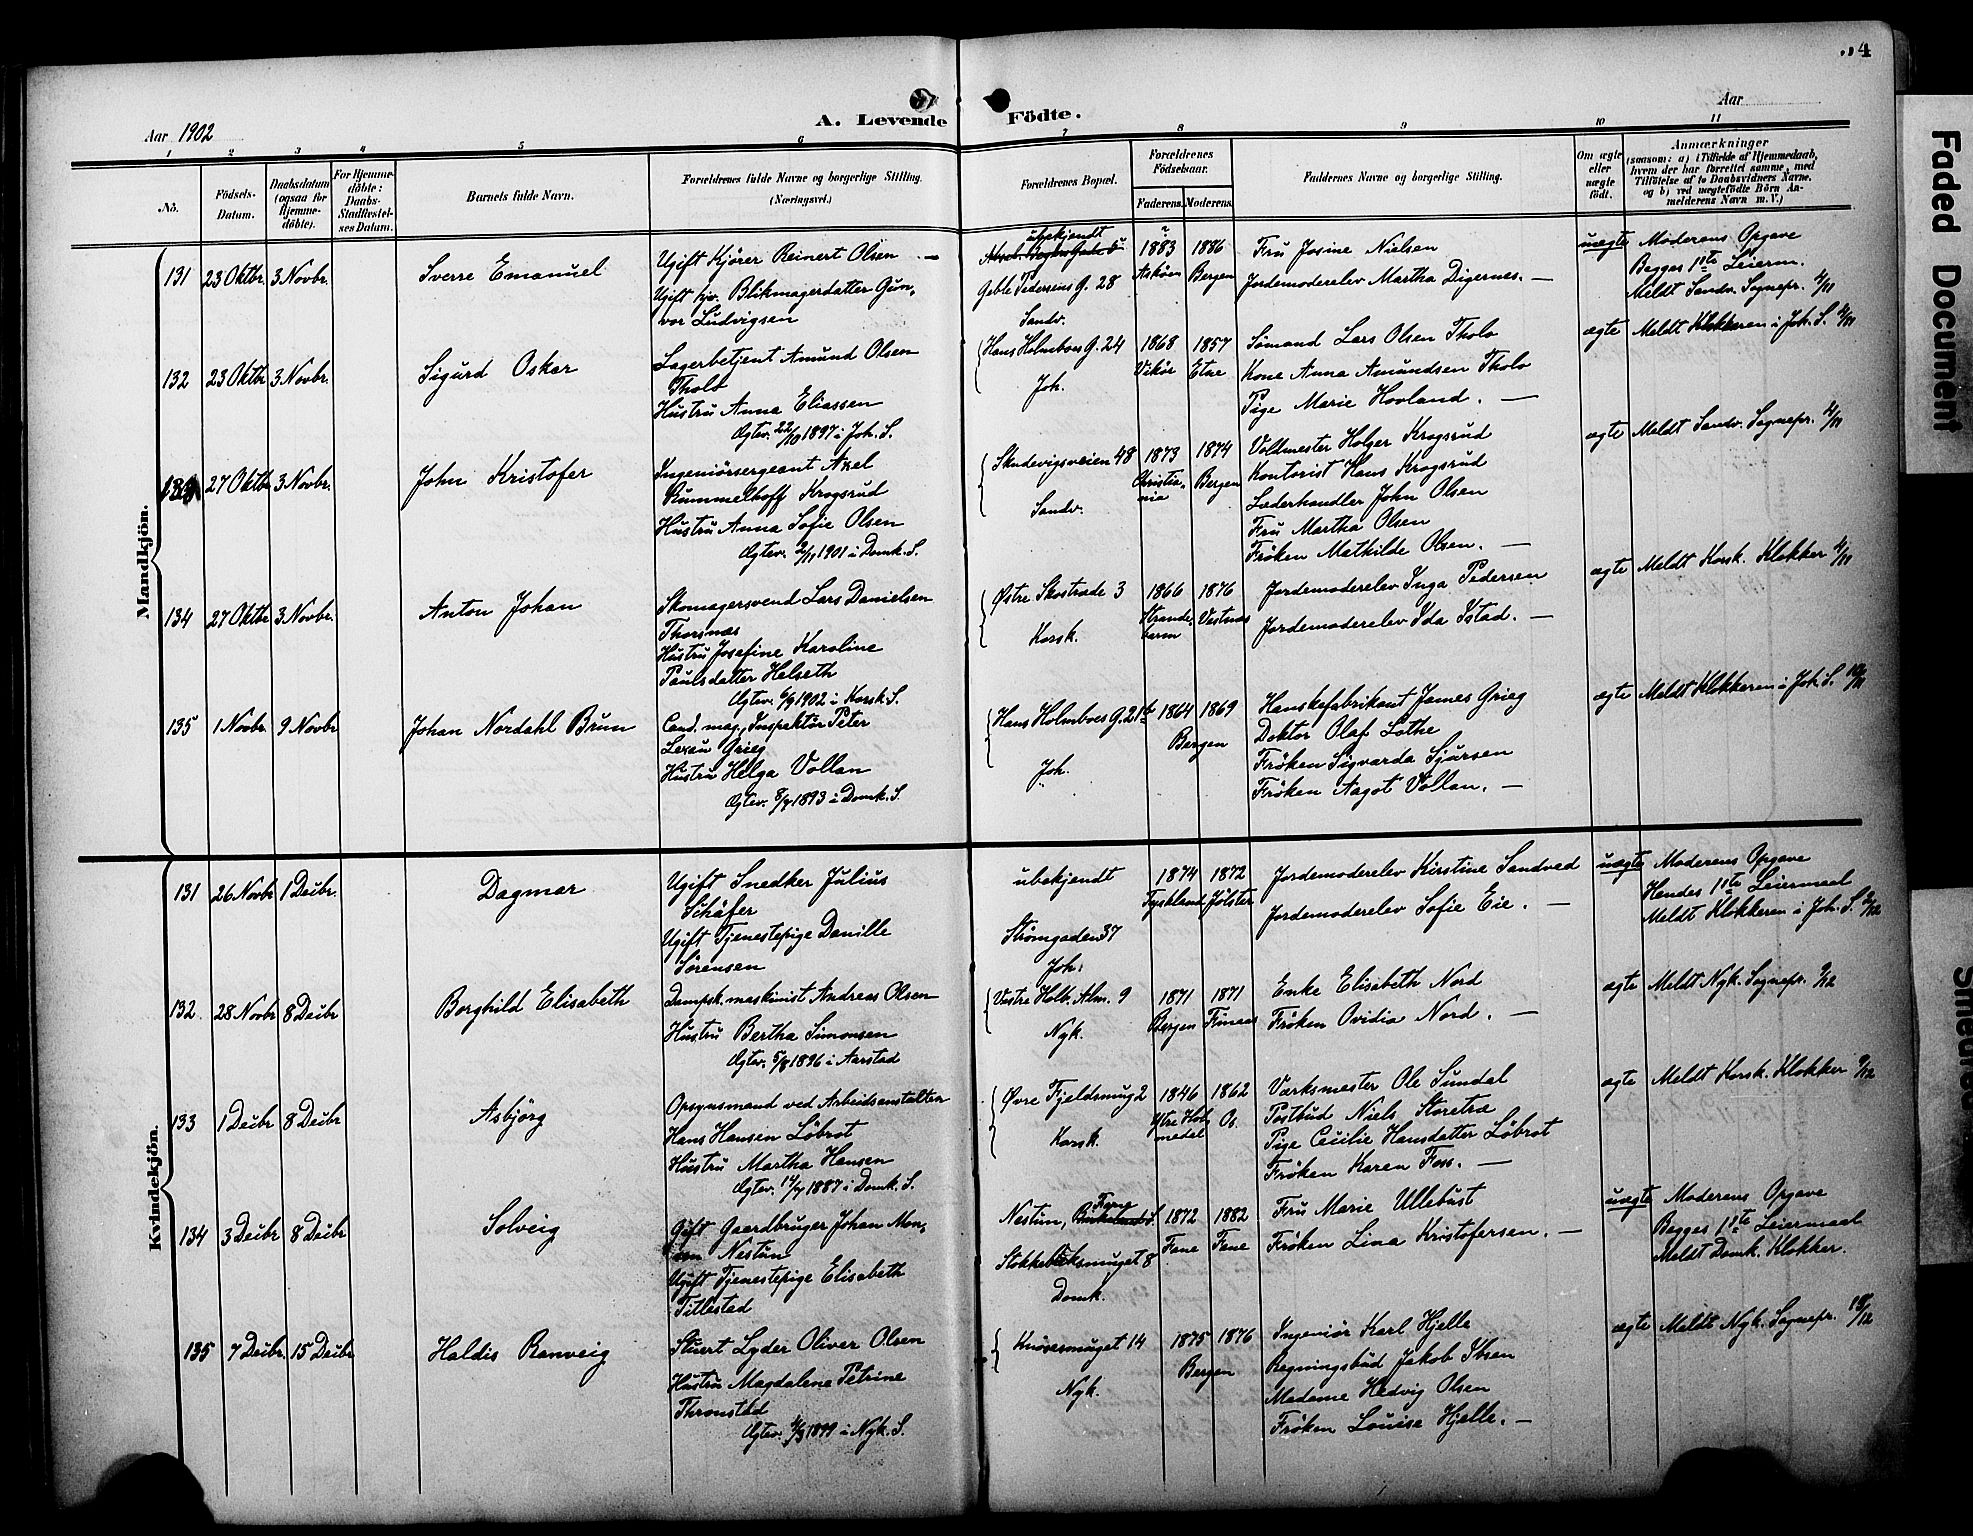 4
Aar 1902
A. Levende Födte.
Aar
1 2 3 4 5 6 7 8 9 10 11
No.
Födsels-Datum.
Daabsdatum (ogsaa for Hjemmedöbte).
For Hjemmedöbte: Daabs-Stadfæstelses Datum.
Barnets fulde Navn.
Forældrenes fulde Navne og borgerlige Stilling. (Næringsvei.)
Forældrenes Bopæl.
Forældrenes Födselsaar.
Faderens. Moderens.
Faddernes Navne og borgerlige Stilling.
Om ægte eller uægte födt.
Anmærkninger
(saasom: a) i Tilfælde af Hjemmedaab, hvem der har forrettet samme, med Tilföielse af to Daabsvidners Navne, og b) ved uægtefödte Börn Anmelderens Navn m. V.)
Mandkjön.
131 23 Oktbr. 3 Novbr. Sverre Emanuel
Ugift Kjører Reinert Olsen
Ugift hjv. Blikmagerdatter Gun,
vor Ludvigsen
ubekjendt
Geble Pederrens G. 28
Sandv.
1883 1886
Askøen Bergen
Fru Josine Nielsen
Jordemoderelev Martha Digernes. —
uægte Moderens Opgave
Begges 1ste Leierm.
Meldt Sandv. Sognepr. 4/11
132 23 Oktbr 3 Novbr. Sigurd Oskar
Lagerbetjent Amund Olsen
Tholo
Hustru Anna Eliassen
Ægtev. 22/10 1897 i Joh. S.
Hans Holmboes G. 24
Joh.
1868 1857
Vikør Etne
Sømand Lars Olsen Tholo
Kone Anna Amundsen Tholo
Pige Marie Hovland. —
ægte Meldt Klokkeren i Joh. S. 4/11
27 Oktbr 3 Novbr. John Kristofer
Ingeniørsergeant Axel
Rummelhoff Krogsrud
Hustru Anna Sofie Olsen
Ægtev. 9/11 1901 i Domk. S.
Skudevigsveien 48
Sandv.
1873 1874
Christiania Bergen
Voldmester Holger Krogsrud
Kontorist Hans Krogsrud
Læderhandler John Olsen
Fru Martha Olsen
Frøken Mathilde Olsen. —
ægte Meldt Sandv. Sognepr. 4/11
134 27 Oktbr 3 Novbr. Anton Johan
Skomagersvend Lars Danielsen
Thorsnæs
Hustru Josefine Karoline
Paulsdatter Helseth
Ægtev. 6/9 1902 i Korsk. S.
Østre Skostræde 3
Korsk.
1866 1876
Strandebarm Vestnæs
Jordemoderelev Inga Pedersen
Jordemoderelev Ida Istad. —
ægte Meldt Korsk. Klokker 4/11
135 1 Novbr. 9 Novbr Johan Nordahl Brun
Cand. mag., Inspektør Peter
Lexau Grieg
Hustru Helga Vollan
Ægtev. 8/7 1893 i Domk. S.
Hans Holmboes G. 21b
Joh.
1864 1869
Bergen
Hanskefabrikant James Grieg
Doktor Olaf Lothe
Frøken Sigvarda Sjursen
Frøken Aagot Vollan. —
ægte Meldt Klokkeren i Joh. S. 10/11
Kvindekjön.
131 26 Novbr 1 Decbr. Dagmar
Ugift Snedker Julius
Schäfer
Ugift Tjenestepige Danille
Sørensen
ubekjendt
Strømgaden 37
Joh.
1874 1872
Tyskland Jølster
Jordemoderelev Kirstine Sandved
Jordemoderelev Sofie Eie. —
uægte Moderens Opgave
Hendes 1ste Leiermaal
Meldt Klokkeren i Joh. S. 2/12
132 28 Novbr 8 Decbr Borghild Elisabeth
Dampsk. maskinist Andreas Olsen
Hustru Bertha Simonsen
Ægtev. 5/8 1896 i Aarstad
Vestre Holb. Alm. 9
Nyk.
1871 1871
Bergen Finaas
Enke Elisabeth Nord
Frøken Ovidia Nord. —
ægte Meldt Nyk. Sognepr. 9/12
133 1 Decbr 8 Decbr Asbjörg
Opsynsmand ved Arbeidsanstalten
Hans Hansen Löbrot
Hustru Martha Hansen
Ægtev. 17/7 1887 i Domk. S.
Øvre Fjeldsmug 2
Korsk.
1846 1862
Ytre Holmedal Os.
Værksmester Ole Sundal
Postbud Niels Storetræ
Pige Cecilie Hansdatter Löbrot
Frøken Karen Foss. —
ægte Meldt Korsk. Klokker 9/12
134 3 Decbr 8 Decbr Solveig
Gift Gaardbruger Johan Mon,
sen Nestun
Ugift Tjenestepige Elisabeth
Titlestad
Nestun,
Stokkebæksmuget 8
Domk.
1872 1882
Fane Fane
Fru Marie Ullebust
Frøken Lina Kristofersen. —
uægte Moderens Opgave
Begges 1ste Leiermaal
Meldt Domk. Klokker.
135 7 Decbr 15 Decbr Haldis Ranveig
Stuert Lyder Oliver Olsen
Hustru Magdalene Petrine
Thronstad
Ægtev. 1899 i Nyk. S.
Knøsesmuget 14
Nyk.
1875 1876
Bergen
Ingeniør Karl Hjelle
Regningsbud Jakob Ibsen
Madame Hedvig Olsen
Frøken Louise Hjelle. —
ægte Meldt Nyk. Sognepr. 18/12
Faded Document